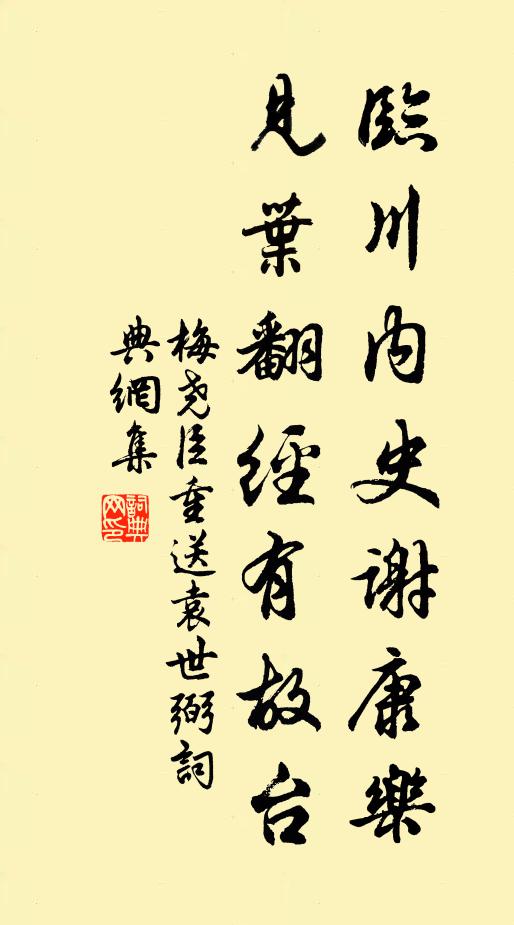 臨川内史謝康樂
見葉翻經有故台
梅尧臣重送袁世弼詞
典網集
詞典網印